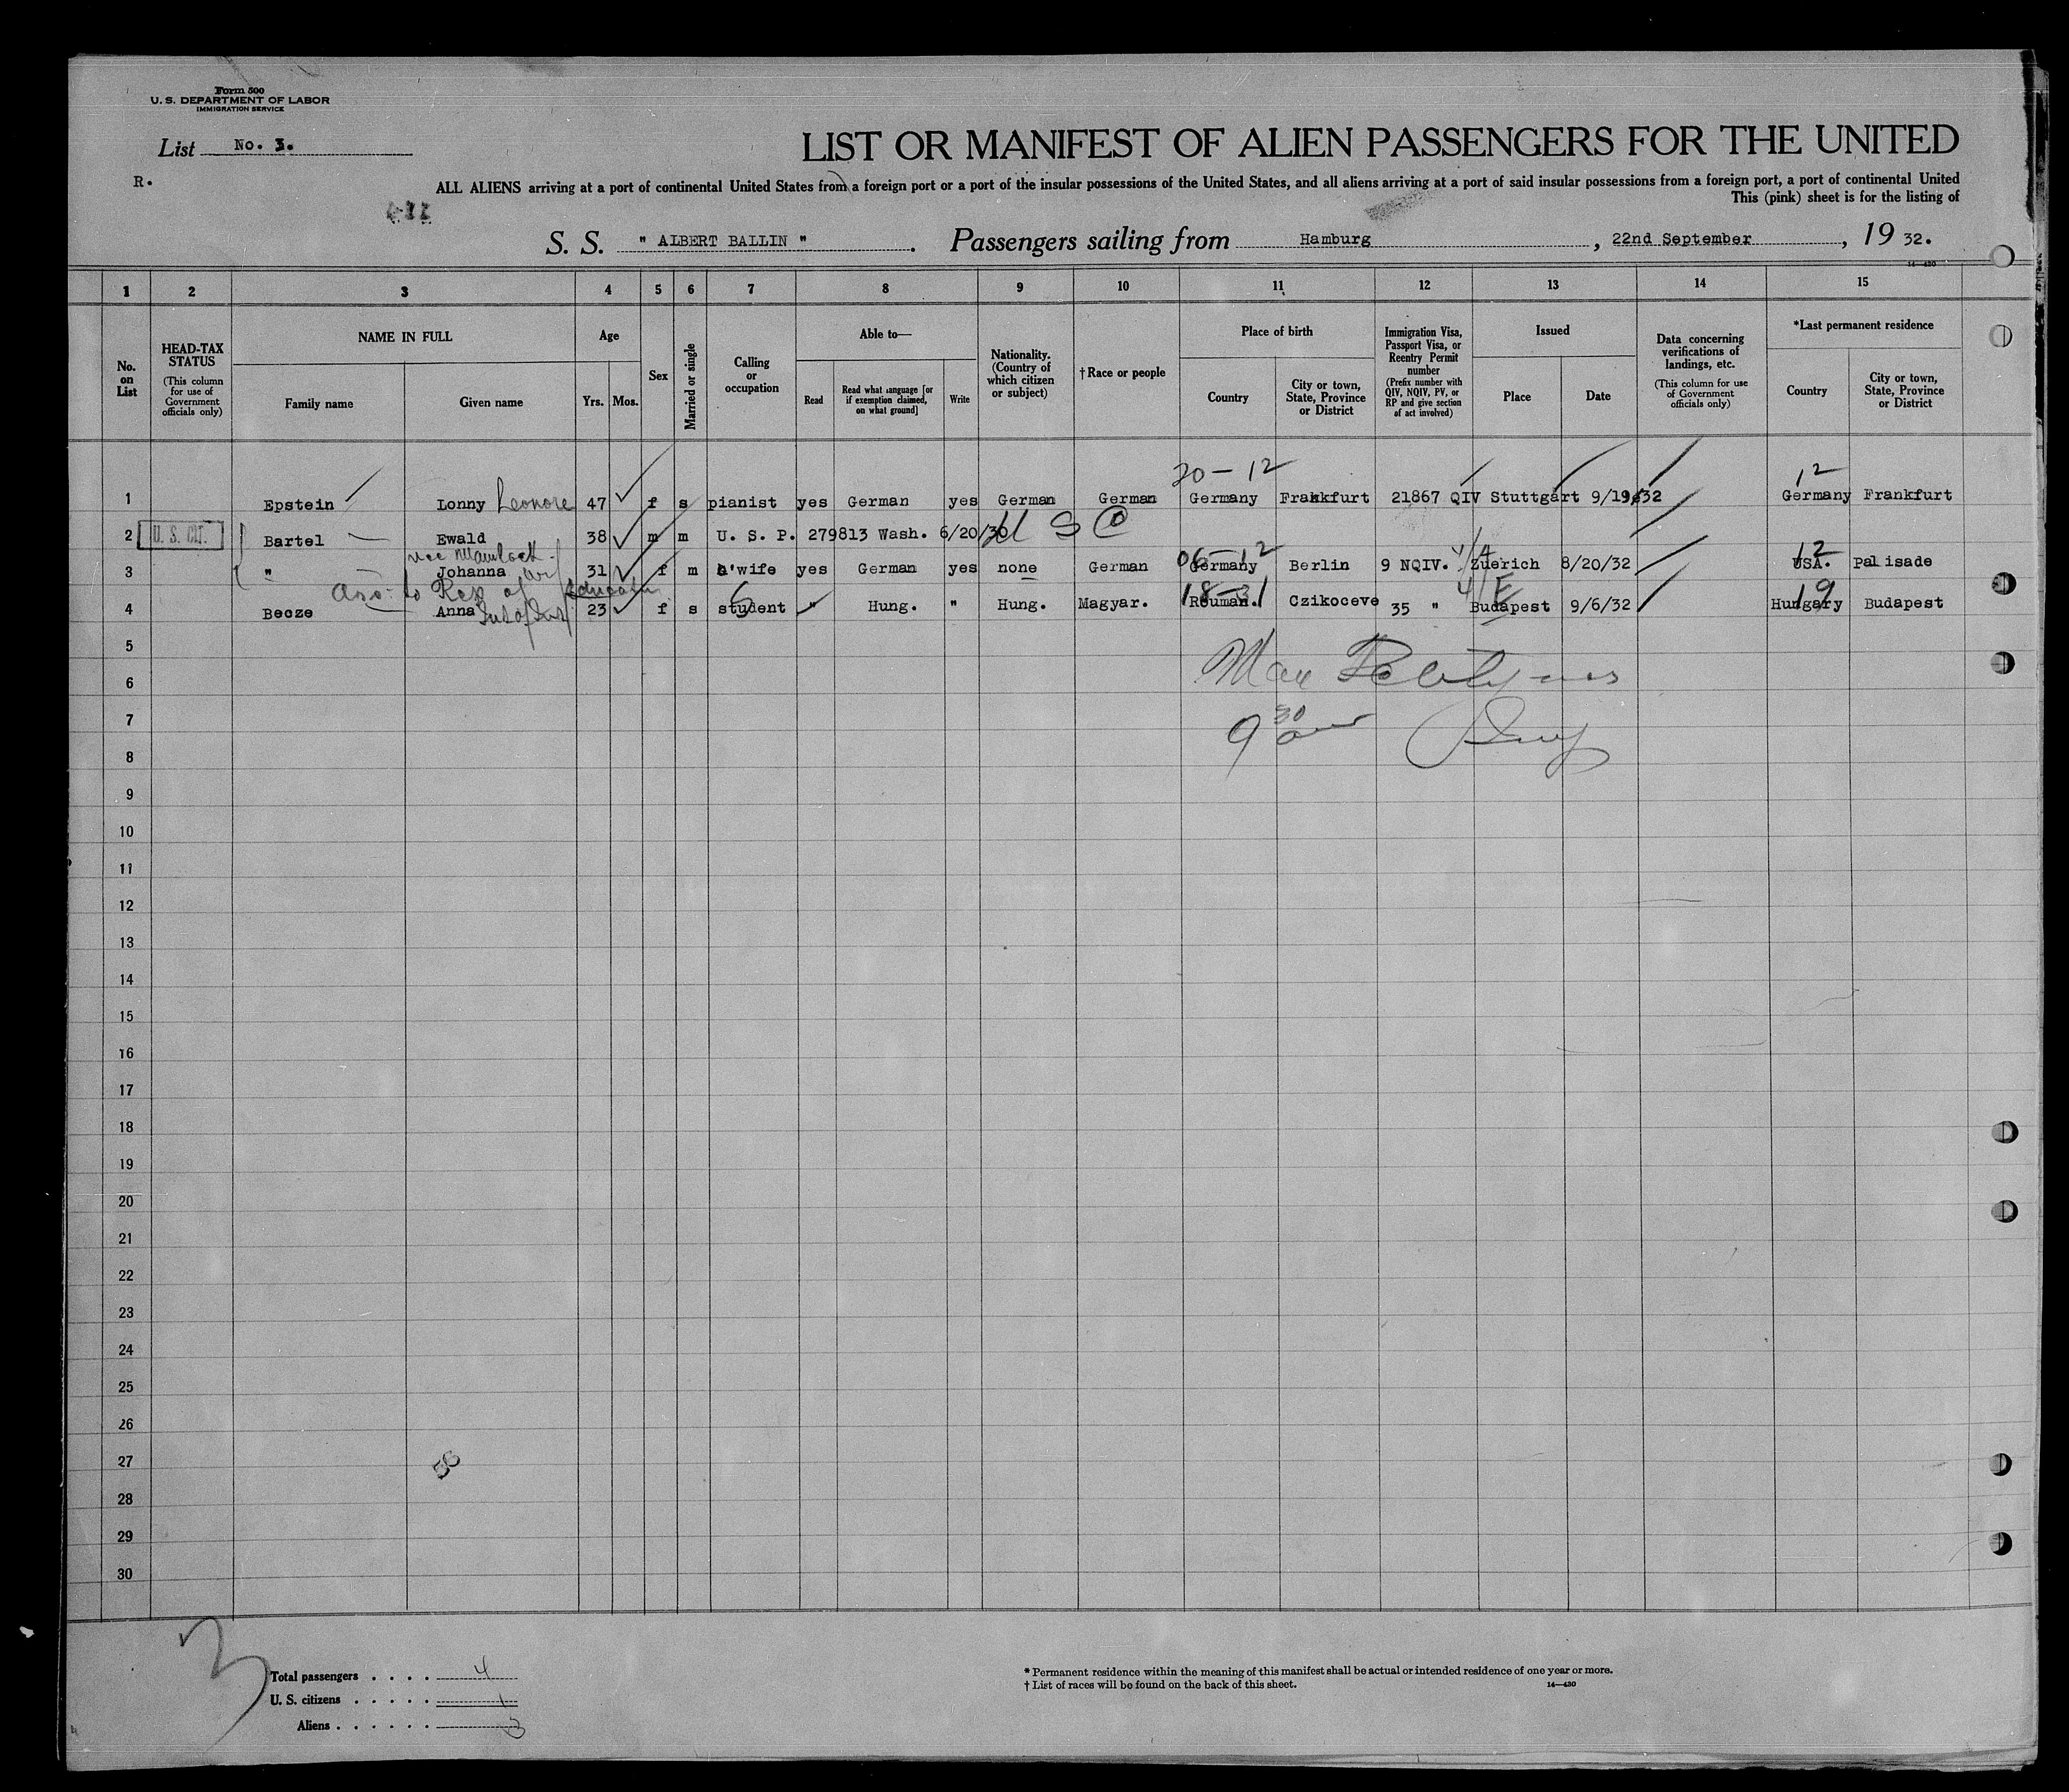 Form 500
U. S. DEPARTMENT OF LABOR
IMMIGRATION SERVICE
List No. 3.
LIST OR MANIFEST OF ALIEN PASSENGERS FOR THE UNITED
R.
ALL ALIENS arriving at a port of continental United States from a foreign port or a port of the insular possessions of the United States, and all aliens arriving at a port of said insular possessions from a foreign port, a port of continental United
This (pink) sheet is for the listing of
S. S. " ALBERT BALLIN " . Passengers sailing from Hamburg , 22nd September , 19 32.
14—430
1 2 3 4 5 6 7 8 9 10 11 12 13 14 15
No. on List
HEAD-TAX STATUS
(This column for use of Government officials only)
NAME IN FULL
Family name Given name
Age
Yrs. Mos.
Sex
Married or single
Calling or occupation
Able to—
Read
Read what language [or if exemption claimed, on what ground]
Write
Nationality. (Country of which citizen or subject)
†Race or people
Place of birth
Country
City or town, State, Province or District
Immigration Visa, Passport Visa, or Reentry Permit number
(Prefix number with QIV, NQIV, PV, or RP and give section of act involved)
Issued
Place Date
Data concerning verifications of landings, etc.
(This column for use of Government officials only)
*Last permanent residence
Country
City or town, State, Province or District
20 - 12 12
1 Epstein Lonny Leonore 47 f s pianist yes German yes German German Germany Frankfurt 21867 QIV Stuttgart 9/19/32 Germany Frankfurt
2 U. S. CIT. Bartel Ewald 38 m m U. S. P. 279813 Wash. 6/20/30 U S C
nee
06-12 12
3 " Johanna 31 f m h'wife yes German yes none German Germany Berlin 9 NQIV. Zuerich 8/20/32 USA. Palisade
to Rep of
18-31 4/E 19
4 Becze Anna 23 f s student " Hung. " Hung. Magyar. Rouman. Czikoceve 35 " Budapest 9/6/32 Hungary Budapest
5
6
7
9 30
8
9
10
11
12
13
14
15
16
17
18
19
20
21
22
23
24
25
26
27
28
29
30
3
Total passengers . . . . 4
U. S. citizens . . . . . 1
Aliens . . . . . . 3
* Permanent residence within the meaning of this manifest shall be actual or intended residence of one year or more.
† List of races will be found on the back of this sheet.
14—430